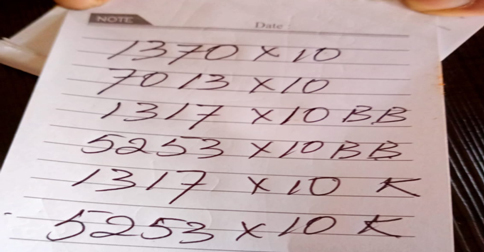 NOTE
Date
1370 x 10
7013 x 10
1317 x 10 BB
5253 x 10 BB
1317 x 10 K
5253 x 10 K